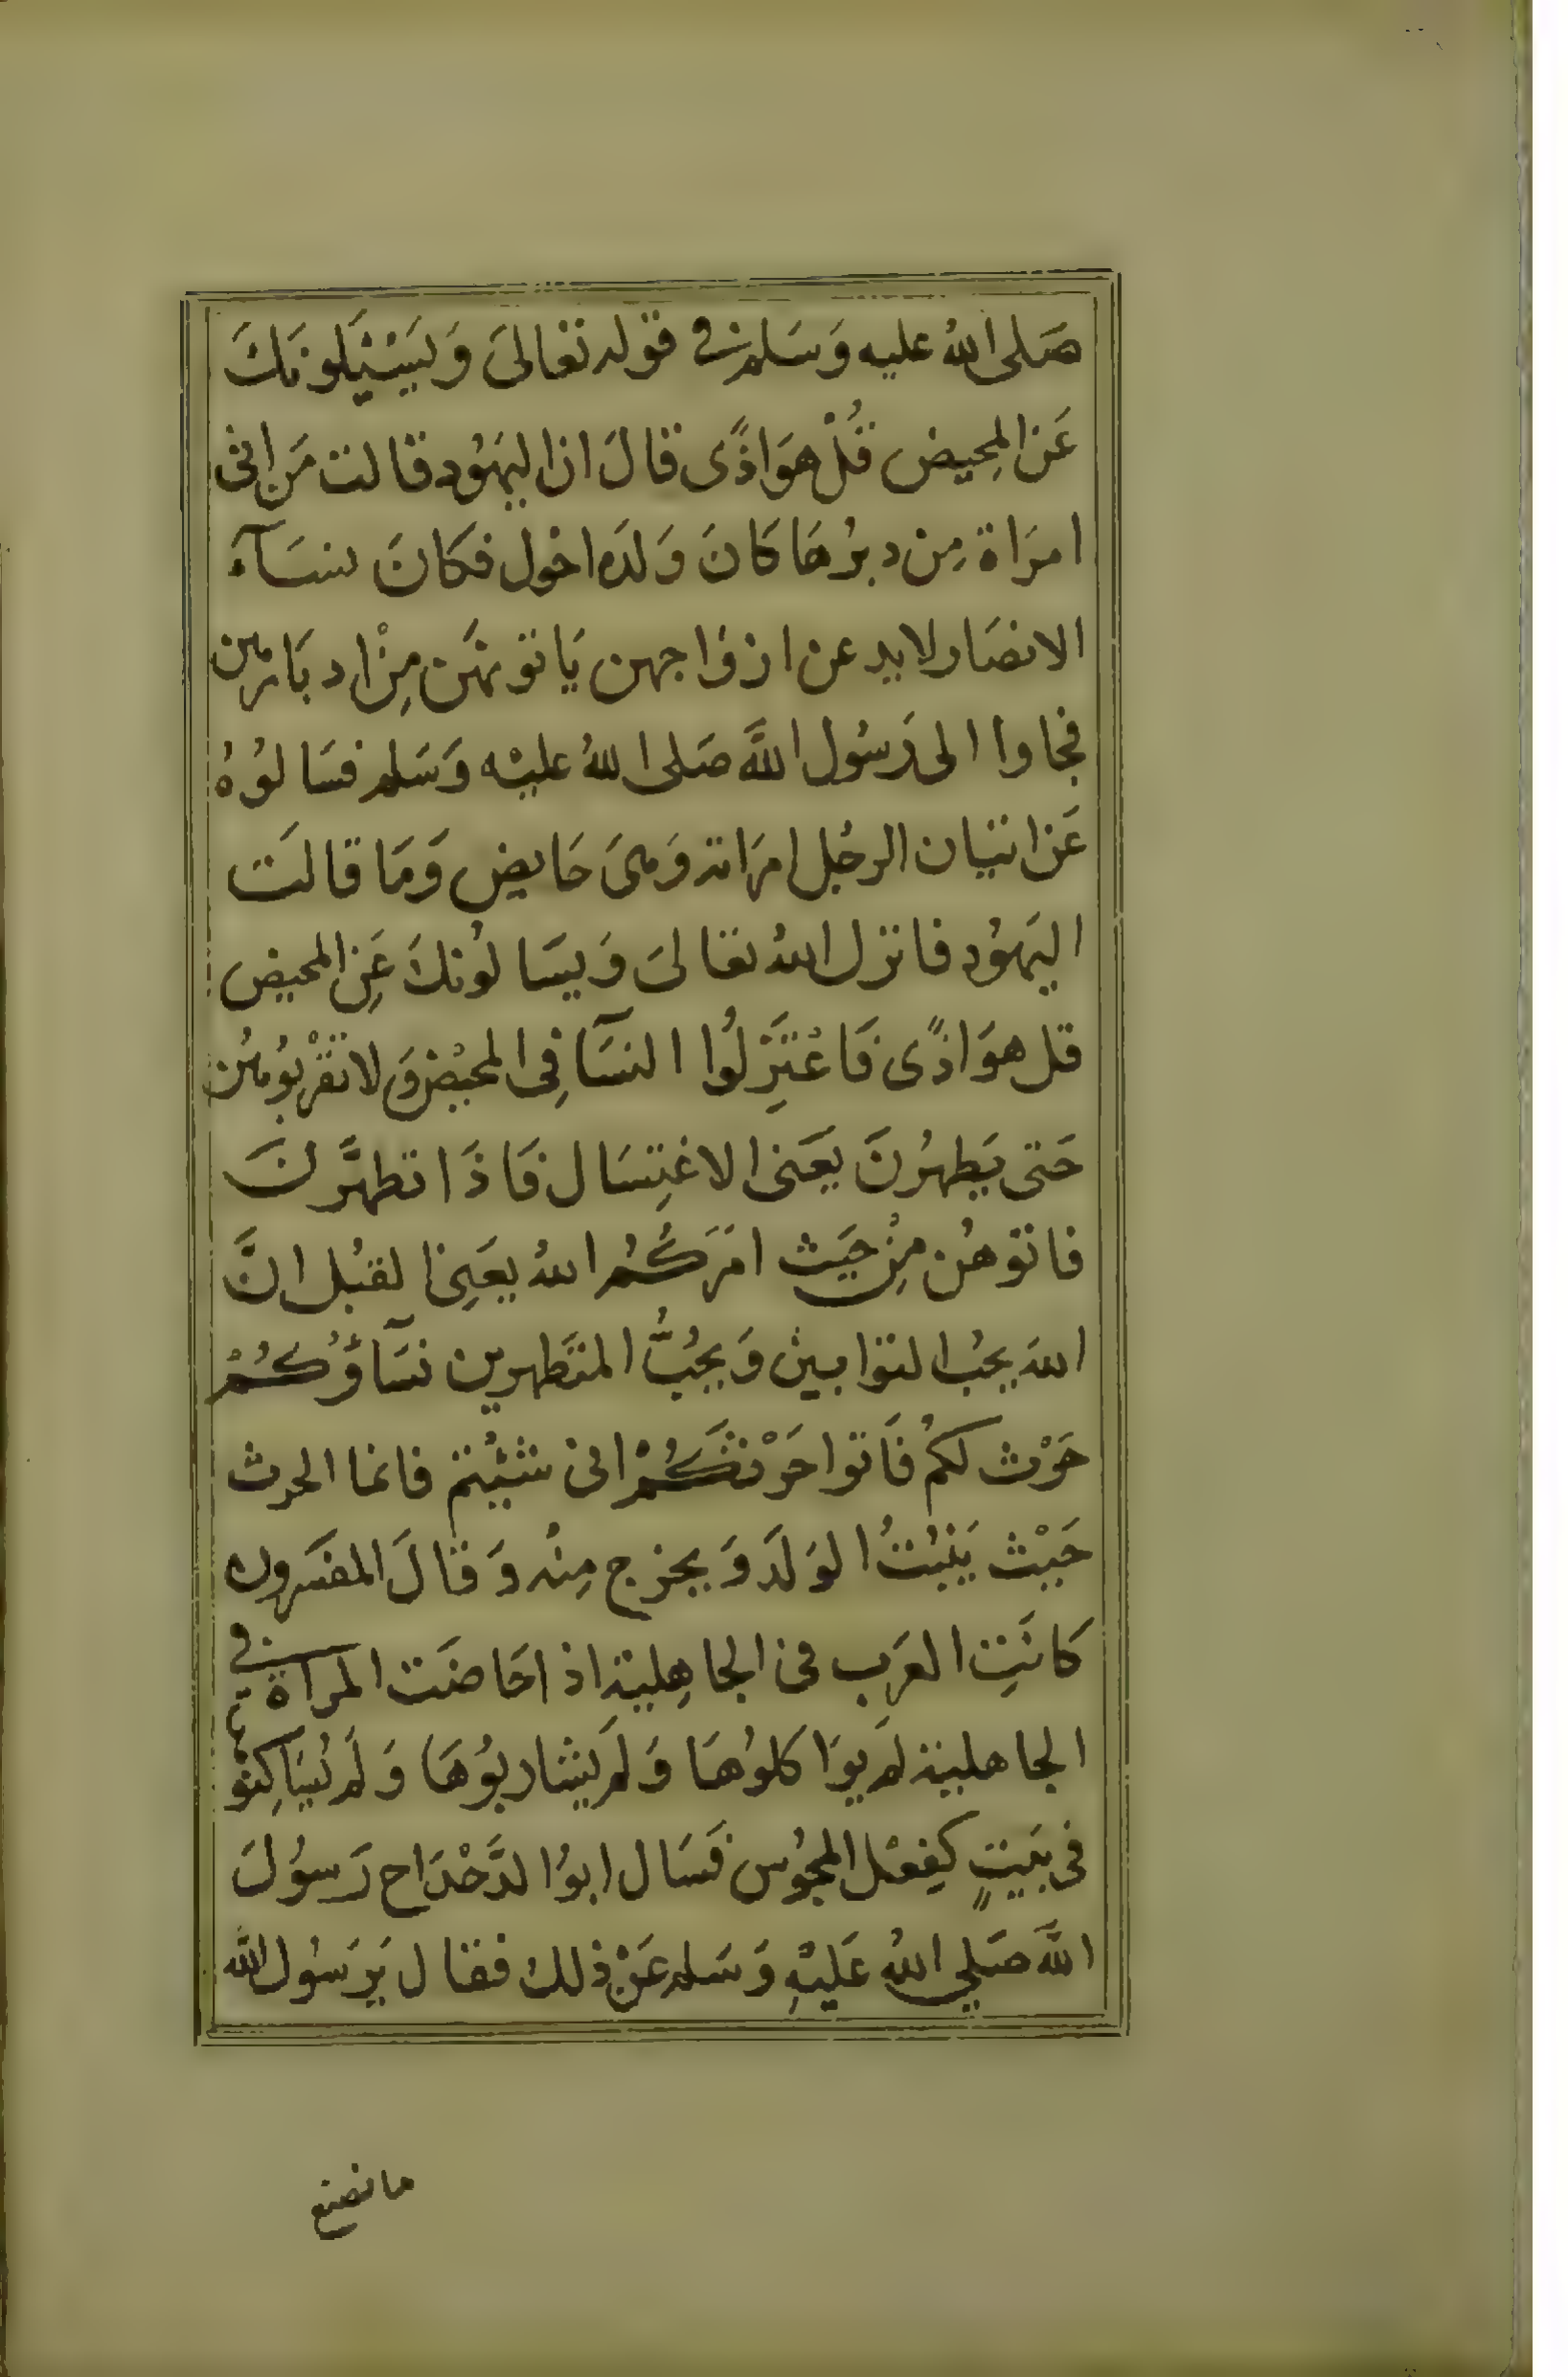 صَلى اللهُ عليه وَسَلم في قوله تعالىَ وَيَسْئَلونَكَ
عَن المحِيض قُلْ هوَ اذًى قالَ ان اليهَوُد قالت مَن اتى
امرَاة مِن دبرُهَا كانَ وَلدَه احول فكانَ نسَآء
الانصَار لا يدعن ازوَاجهن يَاتونهَن مِنْ ادبَارهن
فجاوا الى رَسُول اللَّه صَلى اللهُ عليْه وَسَلم فسَالوُهُ
عَن اتيان الرجُل امرَاته وَهىَ حَايض وَمَا قالَت
اليَهوُد فانزل اللهُ تعَالىَ وَيسَالوُنكَ عَنِ المحيض
قل هوَ اذًى فَاعْتَزِلُوا النسَآ فِى المحيْض وَلا تقْربُوهُن
حَتى يَطهرُنَ يعَنى الاغتِسَال فَاذَا تطهَّرنَ
فاتوهُن مِنْ حَيَث امَرَكُمُ اللهُ يعَنِى القبُل انَّ
اللهَ يحبُ التوابين وَيحُبُّ المتَطهرين نسَآؤُكُمْ
حَرْث لكمُ فَاتوا حَرْثَكُمْ انى شئْتم فانما الحرث
حَيْث يَنْبُتُ الوَلَد وَيخرج مِنْه وَقالَ المفسَرون
كانَتِ العَرب فى الجاهِلية اذا حَاضَت المراة في
الجاهلية لَم يوَاكلوُهَا وَلَم يشاربوُهَا وَلَم يُسَاكِنوها
فى بَيتٍ كفِعْل المجُوس فَسَال ابوُ الدَّحْدَاح رَسوُلَ
اللَّه صَلى اللهُ عَليْهِ وَسَلم عَنْ ذلك فقال يَرَسُول الله
ما نصنع